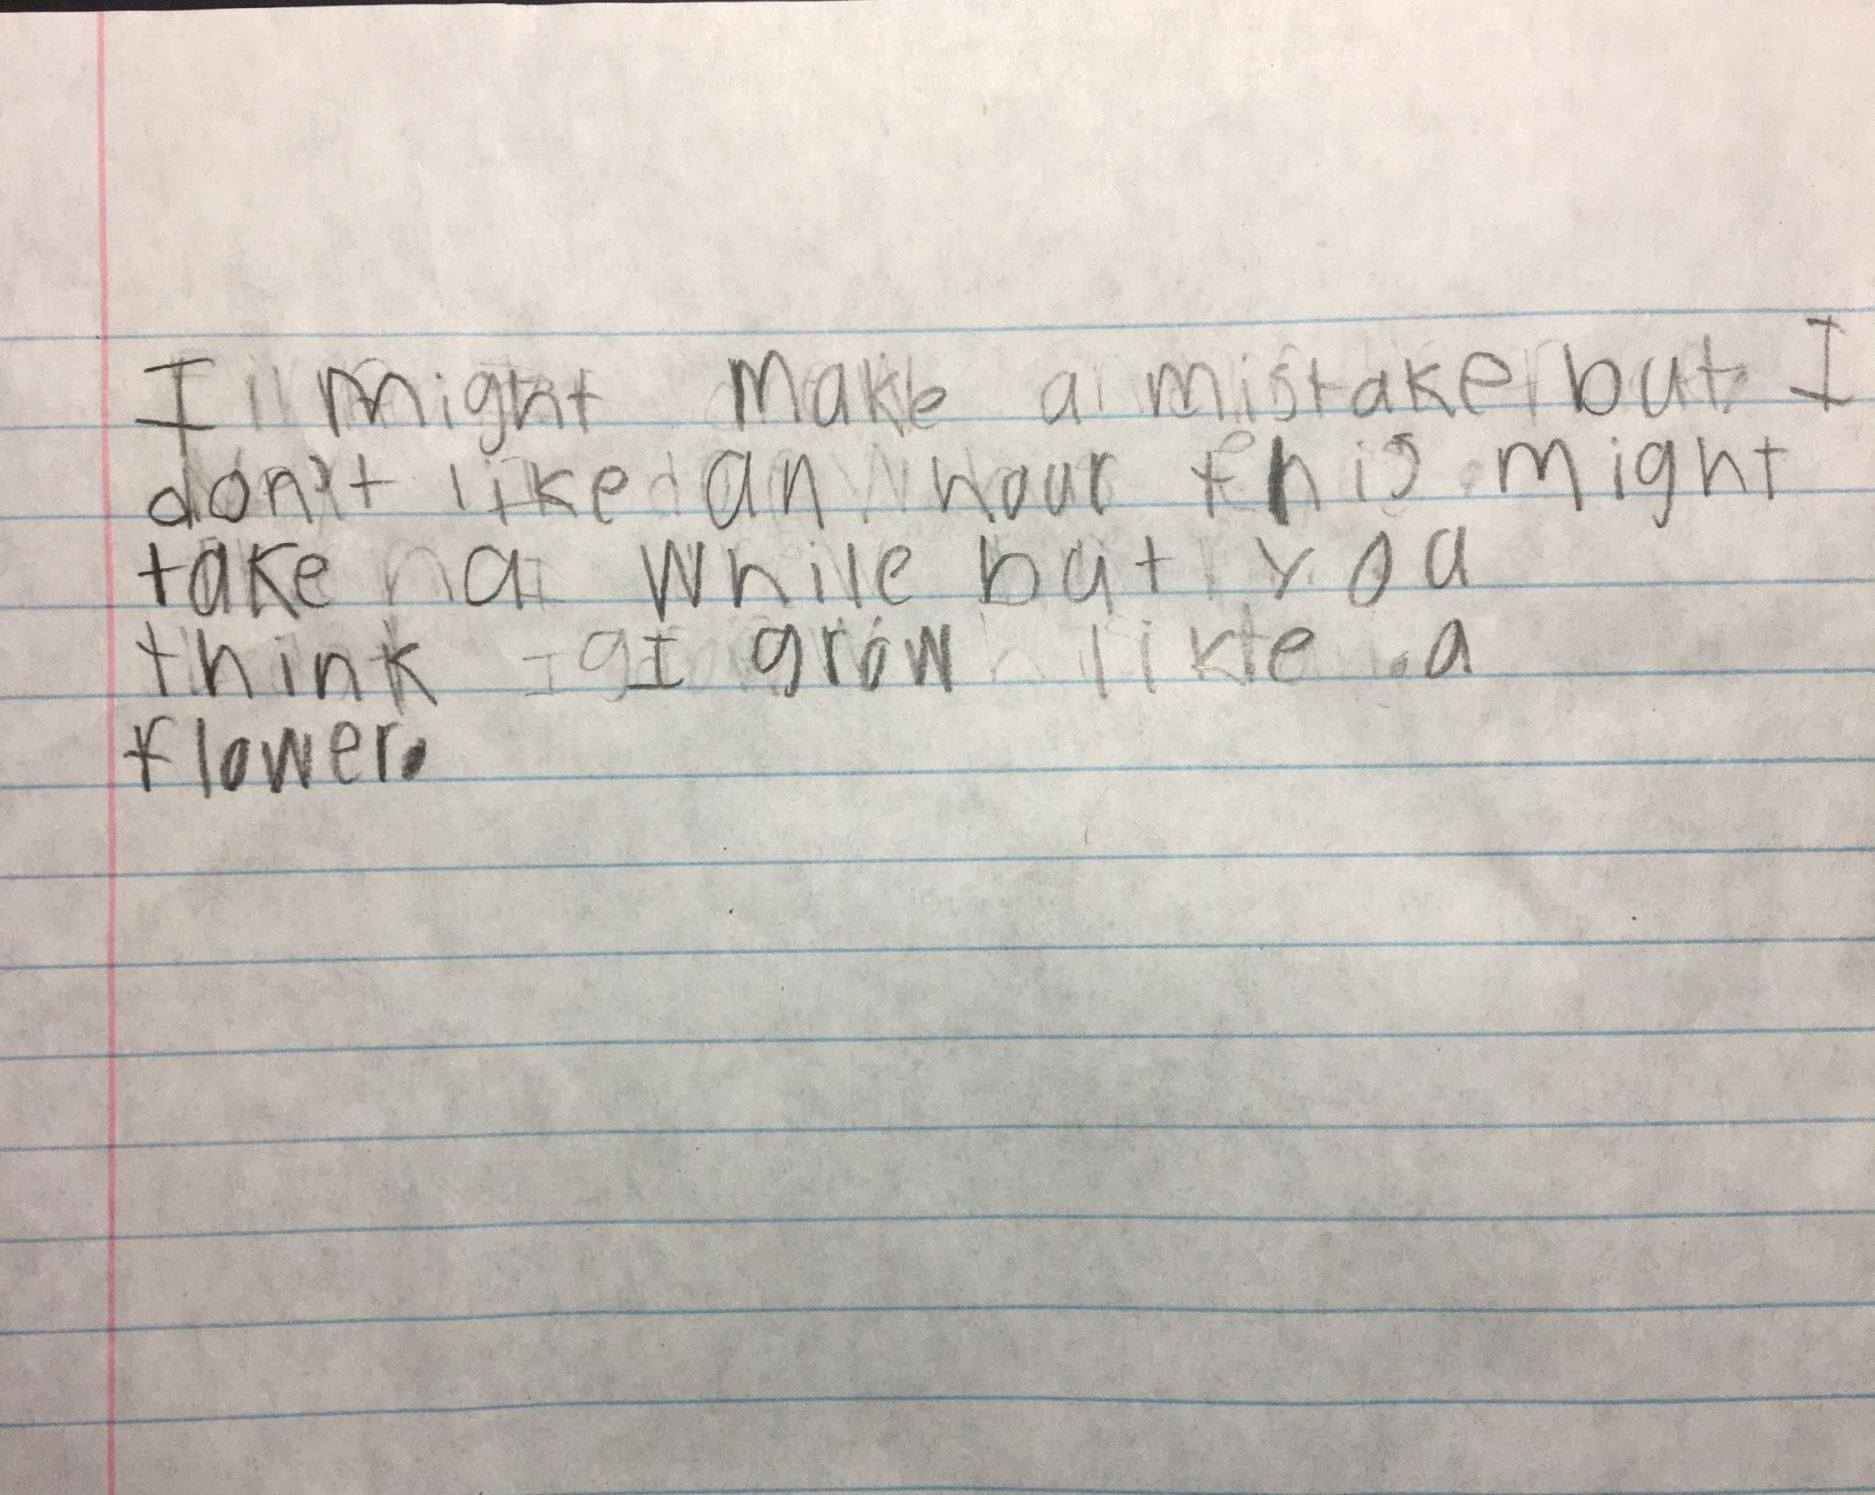 I might make a mistake but I
don't like an hour this might
take a while but you
think I grow like a
flower.